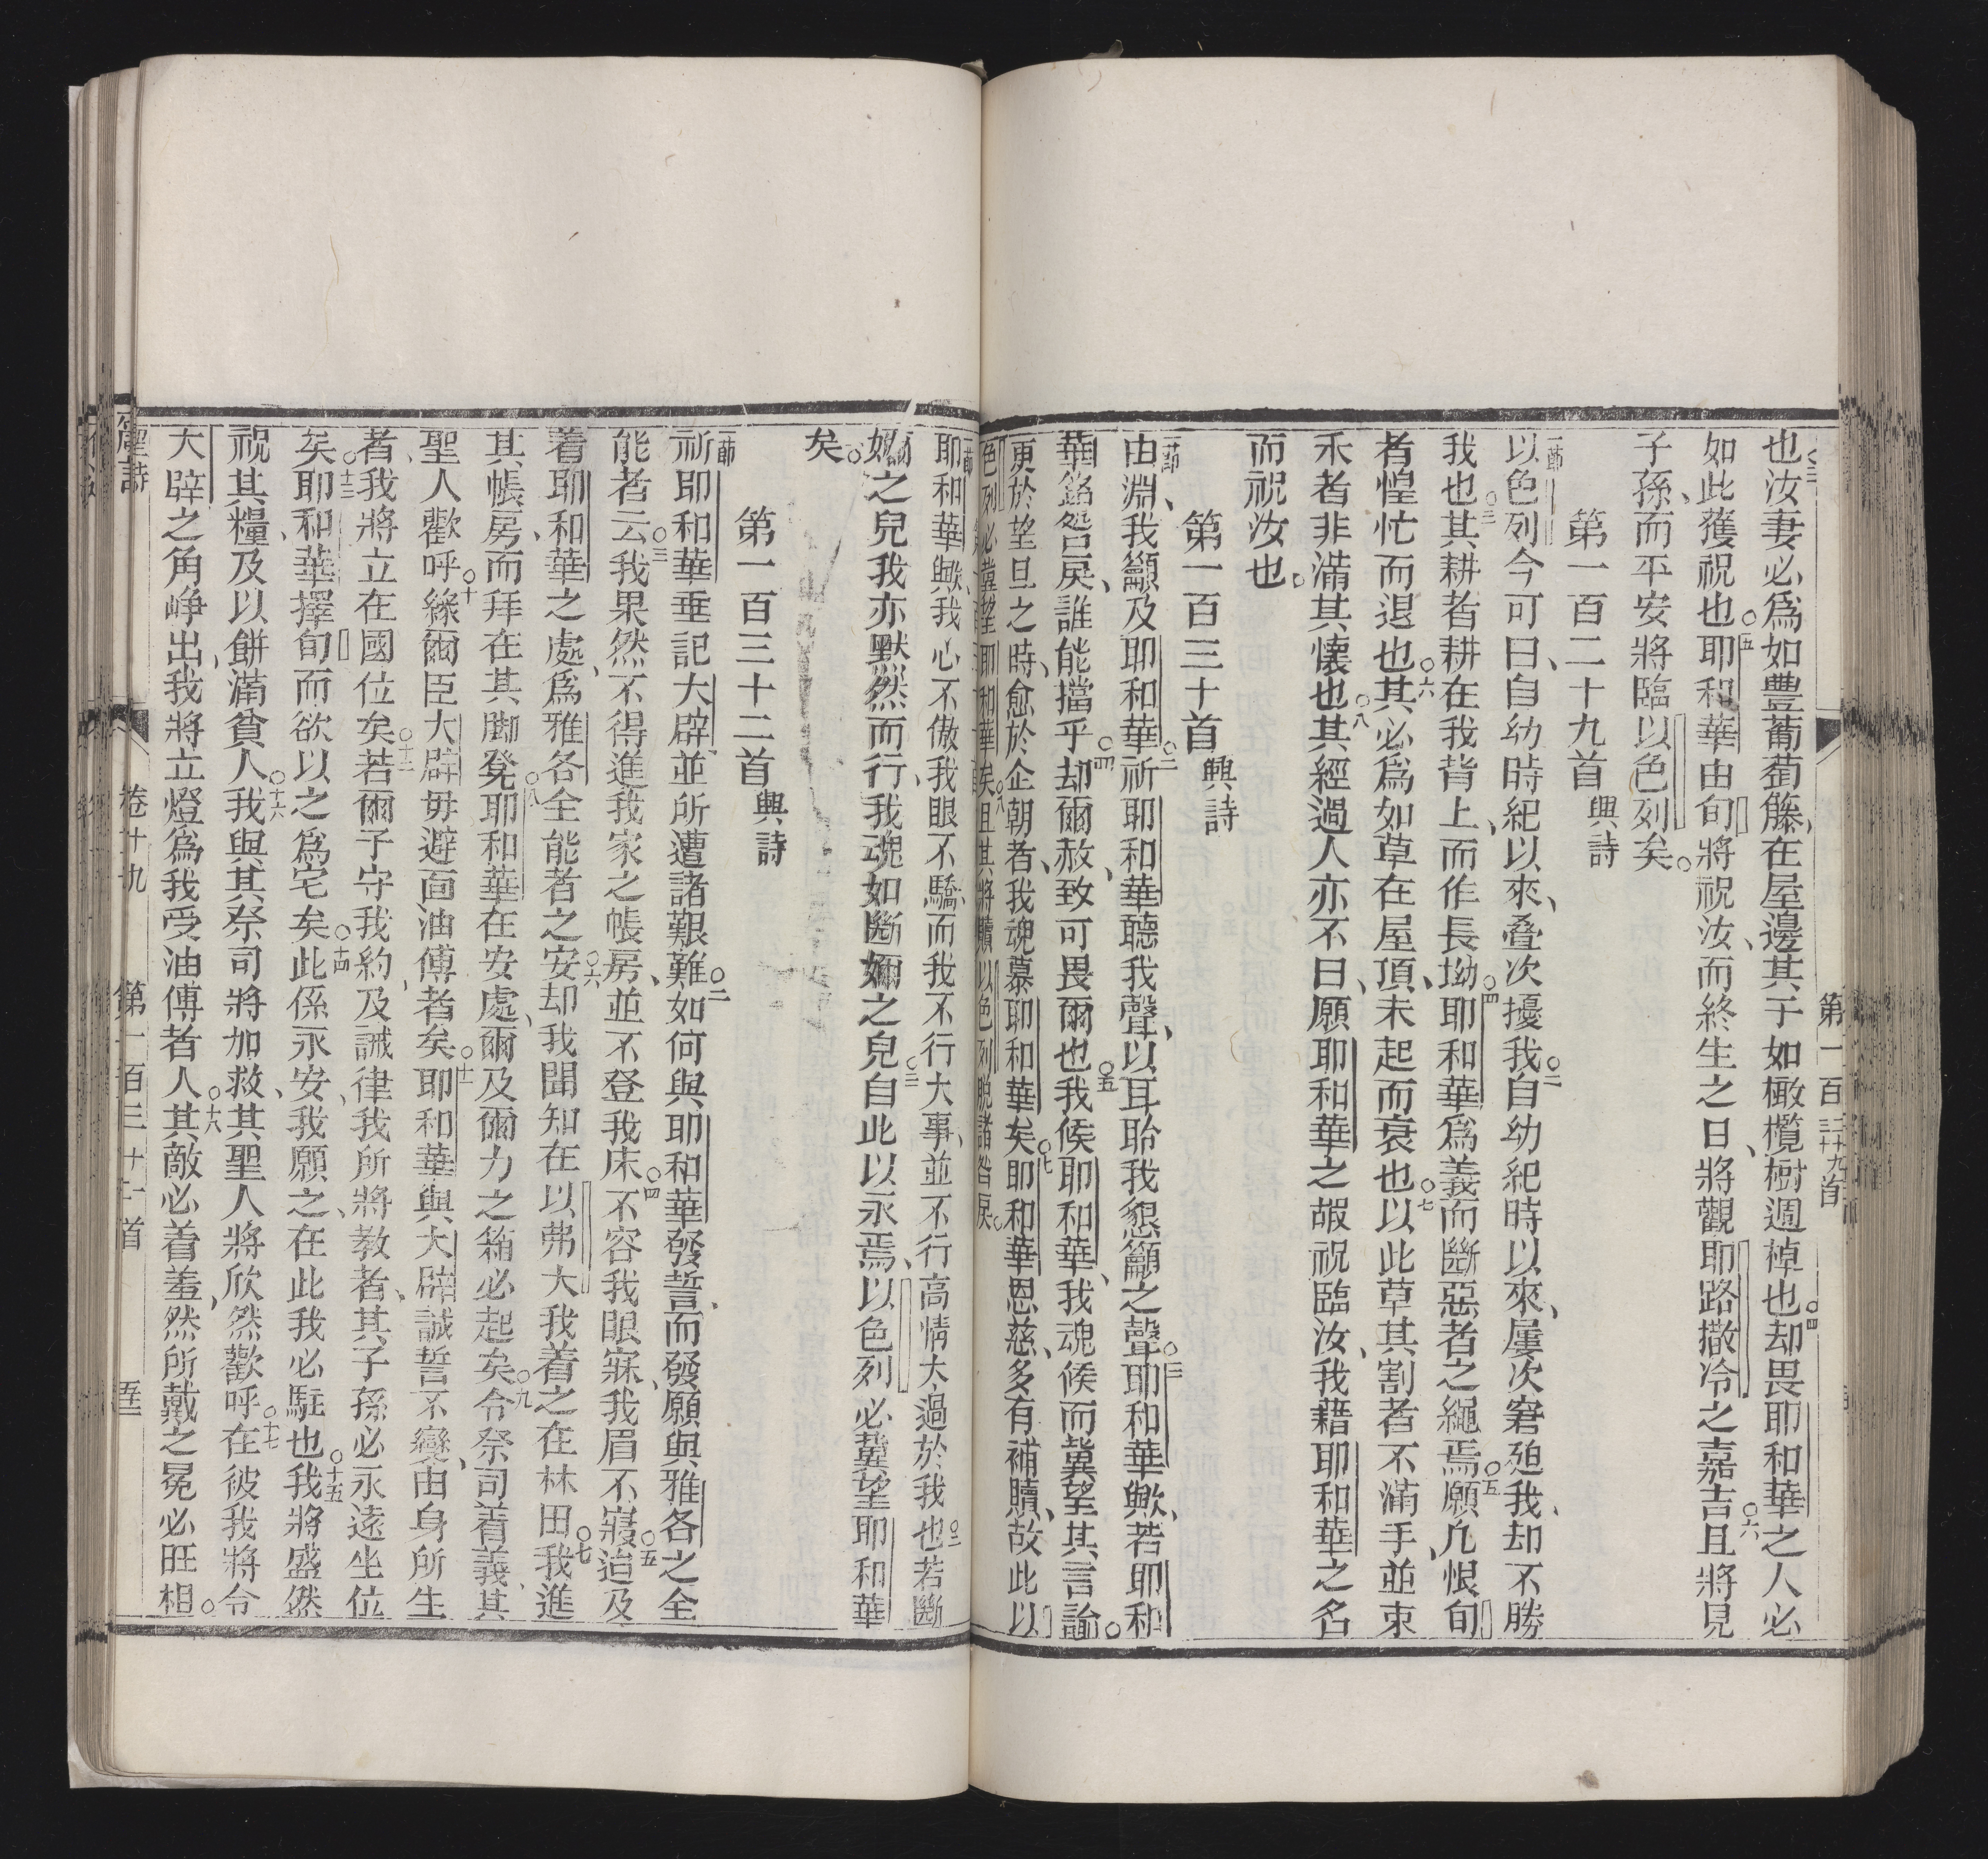 也汝妻必爲如豊葡萄籐在屋邊其子如橄欖樹週棹也○四却畏耶和華之人必
如此獲祝也○五耶和華由旬將祝汝而終生之日將觀耶路撒冷之嘉吉○六且將見
子孫而平安將臨以色列矣
第一百二十九首 興詩
一節以色列今可曰自幼時紀以來叠次擾我○二自幼紀時以來屢次窘廹我却不勝
我也○三其耕者耕在我背上而作長坳○四耶和華爲義而斷惡者之繩焉○五願凢恨旬
者惶忙而退也○六其必爲如草在屋頂未起而衰也○七以此草其割者不滿手並束
禾者非滿其懷也○八其經過人亦不曰願耶和華之嘏祝臨汝我藉耶和華之名
而祝汝也
第一百三十首 興詩
一節由淵我籲及耶和華○二祈耶和華聽我聲以耳聆我懇籲之聲○三耶和華歟若耶和
華銘咎戾誰能擋乎○四却爾赦致可畏爾也○五我候耶和華我魂候而冀望其言諭
更於望旦之時愈於企朝者我魂慕耶和華矣○七耶和華恩慈多有補贖故此以
色列必冀望耶和華矣○八且其將贖以色列脫諸咎戾
一節耶和華歟我心不傲我眼不驕而我不行大事並不行高情大過於我也○二若斷
嬭之兒我亦默然而行我魂如斷嬭之兒○三自此以永焉以色列必冀望耶和華
矣
第一百三十二首 興詩
一節祈耶和華垂記大辟並所遭諸艱難○二如何與耶和華發誓而發願與雅各之全
能者云○三我果然不得進我家之帳房並不登我床○四不容我眼寐我眉不寢○五迨及
着耶和華之處爲雅各全能者之安○六却我聞知在以弗大我着之在林田○七我進
其帳房而拜在其脚凳○八耶和華在安處爾及爾力之箱必起矣○九令祭司着義其
聖人歡呼○十緣爾臣大辟毋避面油傅者矣○十一耶和華與大辟誠誓不變由身所生
者我將立在國位矣○十二若爾子守我約及誡律我所將教者其子孫必永遠坐位
矣○十三耶和華擇旬而欲以之爲宅矣○十四此係永安我願之在此我必駐也○十五我將盛然
祝其糧及以餅滿貧人○十六我與其祭司將加救其聖人將欣然歡呼○十七在彼我將令
大辟之角崢出我將立燈爲我受油傅者人○十八其敵必着羞然所戴之冕必旺相
聖詩 卷十九 第一百三十二首